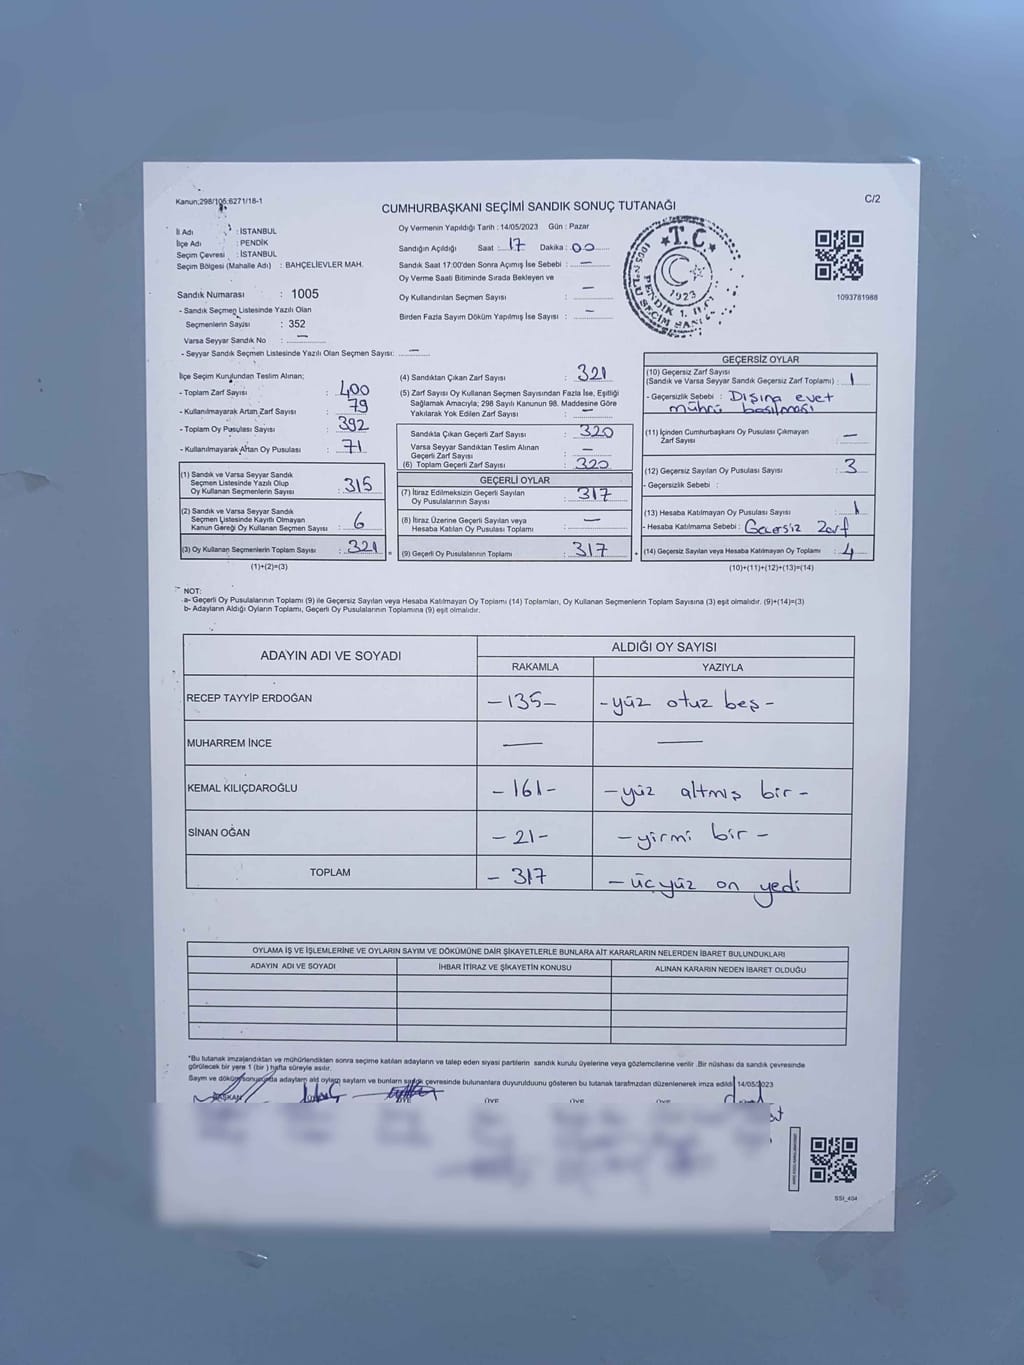 Kanun;298/105;6271/18-1
C/2
CUMHURBAŞKANI SEÇİMİ SANDIK SONUÇ TUTANAĞI
İl Adı : İSTANBUL
İlçe Adı : PENDİK
Seçim Çevresi : İSTANBUL
Seçim Bölgesi (Mahalle Adı) : BAHÇELİEVLER MAH.
Sandık Numarası : 1005
- Sandık Seçmen Listesinde Yazılı Olan
Seçmenlerin Sayısı : 352
Varsa Seyyar Sandık No : —
- Seyyar Sandık Seçmen Listesinde Yazılı Olan Seçmen Sayısı: —
Oy Vermenin Yapıldığı Tarih : 14/05/2023 Gün : Pazar
Sandığın Açıldığı Saat : 17 Dakika : 00
Sandık Saat 17:00'den Sonra Açımış İse Sebebi : —
Oy Verme Saati Bitiminde Sırada Bekleyen ve
Oy Kullandırılan Seçmen Sayısı : —
Birden Fazla Sayım Döküm Yapılmış İse Sayısı : —
T.C.
1923
PENDİK 1. İLÇE
1093781988
İlçe Seçim Kurulundan Teslim Alınan;
- Toplam Zarf Sayısı : 400
- Kullanılmayarak Artan Zarf Sayısı : 79
- Toplam Oy Pusulası Sayısı : 392
- Kullanılmayarak Artan Oy Pusulası : 71
(1) Sandık ve Varsa Seyyar Sandık
Seçmen Listesinde Yazılı Olup
Oy Kullanan Seçmenlerin Sayısı : 315
(2) Sandık ve Varsa Seyyar Sandık
Seçmen Listesinde Kayıtlı Olmayan
Kanun Gereği Oy Kullanan Seçmen Sayısı : 6
(3) Oy Kullanan Seçmenlerin Toplam Sayısı : 321
(1)+(2)=(3)
(4) Sandıktan Çıkan Zarf Sayısı : 321
(5) Zarf Sayısı Oy Kullanan Seçmen Sayısından Fazla İse, Eşitliği
Sağlamak Amacıyla; 298 Sayılı Kanunun 98. Maddesine Göre
Yakılarak Yok Edilen Zarf Sayısı : —
Sandıkta Çıkan Geçerli Zarf Sayısı : 320
Varsa Seyyar Sandıktan Teslim Alınan
Geçerli Zarf Sayısı : —
(6) Toplam Geçerli Zarf Sayısı : 320
GEÇERLİ OYLAR
(7) İtiraz Edilmeksizin Geçerli Sayılan
Oy Pusulalarının Sayısı : 317
(8) İtiraz Üzerine Geçerli Sayılan veya
Hesaba Katılan Oy Pusulası Toplamı : —
(9) Geçerli Oy Pusulalarının Toplamı : 317
GEÇERSİZ OYLAR
(10) Geçersiz Zarf Sayısı
(Sandık ve Varsa Seyyar Sandık Geçersiz Zarf Toplamı) : 1
- Geçersizlik Sebebi : Dışına evet
mührü basılması
(11) İçinden Cumhurbaşkanı Oy Pusulası Çıkmayan
Zarf Sayısı : —
(12) Geçersiz Sayılan Oy Pusulası Sayısı : 3
- Geçersizlik Sebebi :
(13) Hesaba Katılmayan Oy Pusulası Sayısı : 1
- Hesaba Katılmama Sebebi : Gecersiz Zarf
(14) Geçersiz Sayılan veya Hesaba Katılmayan Oy Toplamı : 4
(10)+(11)+(12)+(13)=(14)
NOT:
a- Geçerli Oy Pusulalarının Toplamı (9) ile Geçersiz Sayılan veya Hesaba Katılmayan Oy Toplamı (14) Toplamları, Oy Kullanan Seçmenlerin Toplam Sayısına (3) eşit olmalıdır. (9)+(14)=(3)
b- Adayların Aldığı Oyların Toplamı, Geçerli Oy Pusulalarının Toplamına (9) eşit olmalıdır.
ADAYIN ADI VE SOYADI
ALDIĞI OY SAYISI
RAKAMLA YAZIYLA
RECEP TAYYİP ERDOĞAN -135- -yüz otuz beş-
MUHARREM İNCE — —
KEMAL KILIÇDAROĞLU -161- -yüz altmış bir-
SİNAN OĞAN -21- -yirmi bir-
TOPLAM - 317 -üçyüz on yedi
OYLAMA İŞ VE İŞLEMLERİNE VE OYLARIN SAYIM VE DÖKÜMÜNE DAİR ŞİKAYETLERLE BUNLARA AİT KARARLARIN NELERDEN İBARET BULUNDUKLARI
ADAYIN ADI VE SOYADI İHBAR İTİRAZ VE ŞİKAYETİN KONUSU ALINAN KARARIN NEDEN İBARET OLDUĞU
"Bu tutanak imzalandıktan ve mühürlendikten sonra seçime katılan adayların ve talep eden siyasi partilerin sandık kurulu üyelerine veya gözlemcilerine verilir .Bir nüshası da sandık çevresinde
görülecek bir yere 1 (bir ) hafta süreyle asılır.
Sayım ve döküm sonucunda adayların ald oyların sayların ve bunların sandık çevresinde bulunanlara duyurulduunu gösteren bu tutanak tarafımızdan düzenlenerek imza edildi 14/05/2023
BAŞKAN ÜYE ÜYE ÜYE
SSI_404